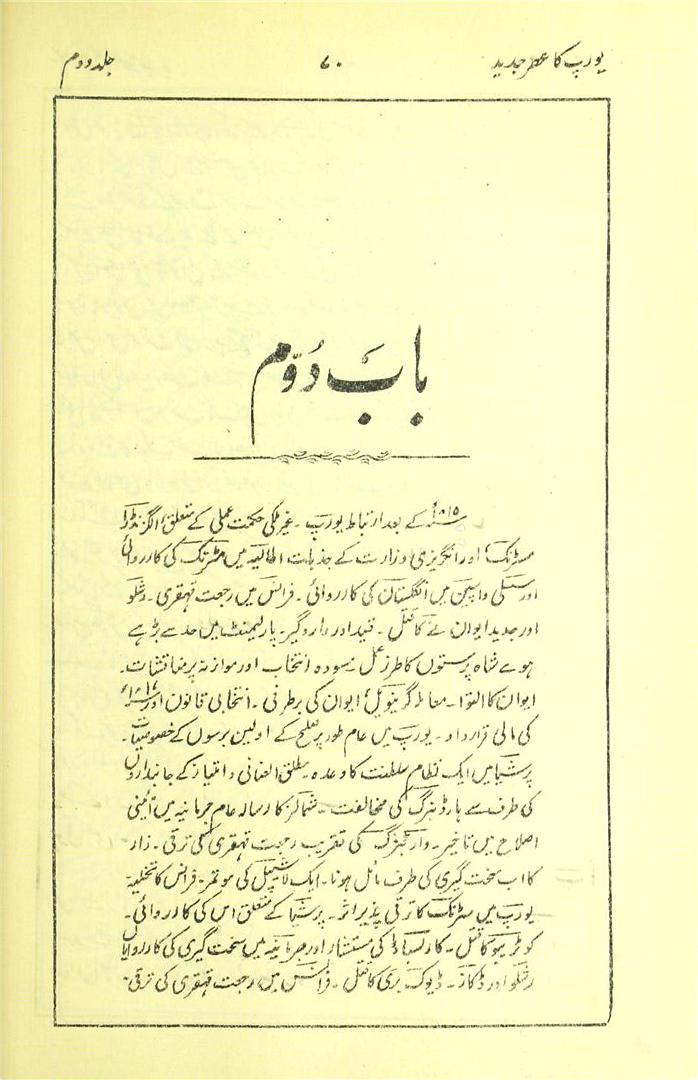 یورپ کا عصر جدید ۷۰ جلد دوم
باب دوّم
۱۸۱۵ء کے بعد ارتباط یورپ ۔ غیر ملکی حکمت عملی کے متعلق
مٹرنک اور انگریزی وزارت کے جذبات اطالیہ میں مٹرنک کی کارروائی
اور سسلی و اسپین میں انگلستان کی کارروائی ۔ فرانس میں رجعت قہقری ۔ رشلو
اور جدید ایوان نے کا قتل ۔ قید اور دار و گیر ۔ پارلیمنٹ میں حد سے بڑہے
ہوے شاہ پرستوں کا طرز عمل مسودہ انتخاب اور موازنہ پر مناقشات ۔
ایوان کا التوا ۔ معاملہ گرینوبل ایوان کی برطرفی ۔ انتخابی قانون اور ۱۸۱۷ء
کی مالی قرارداد ۔ یورپ میں عام طور پر صلح کے اولین برسوں کے خصوصیات ۔
پرشیا میں ایک نظام سلطنت کا وعدہ ۔ مطلق العنانی و امتیاز کے جانبداروں
کی طرف سے ہارڈنبرگ کی مخالفت ۔ شمالز کا رسالہ عام جرمانیہ میں آئینی
اصلاح میں تاخیر ۔ وارٹبرگ کی تقریب رجعت قہقری کی ترقی ۔ زار
کا اب سخت گیری کی طرف مائل ہونا ۔ ایک لاشیپل کی موتمر ۔ فرانس کا تخلیہ
یورپ میں مٹرنک کا ترقی پذیر اثر ۔ پرشیا کے متعلق اس کی کارروائی ۔
کوٹزیبو کا قتل ۔ کارلسباڈ کی مستشار اور جرمانیہ میں سخت گیری کی کارروایاں
رشلو اور ڈکاز ۔ ڈیوک بری کا قتل ۔ فرانس میں رجعت قہقری کی ترقی ۔